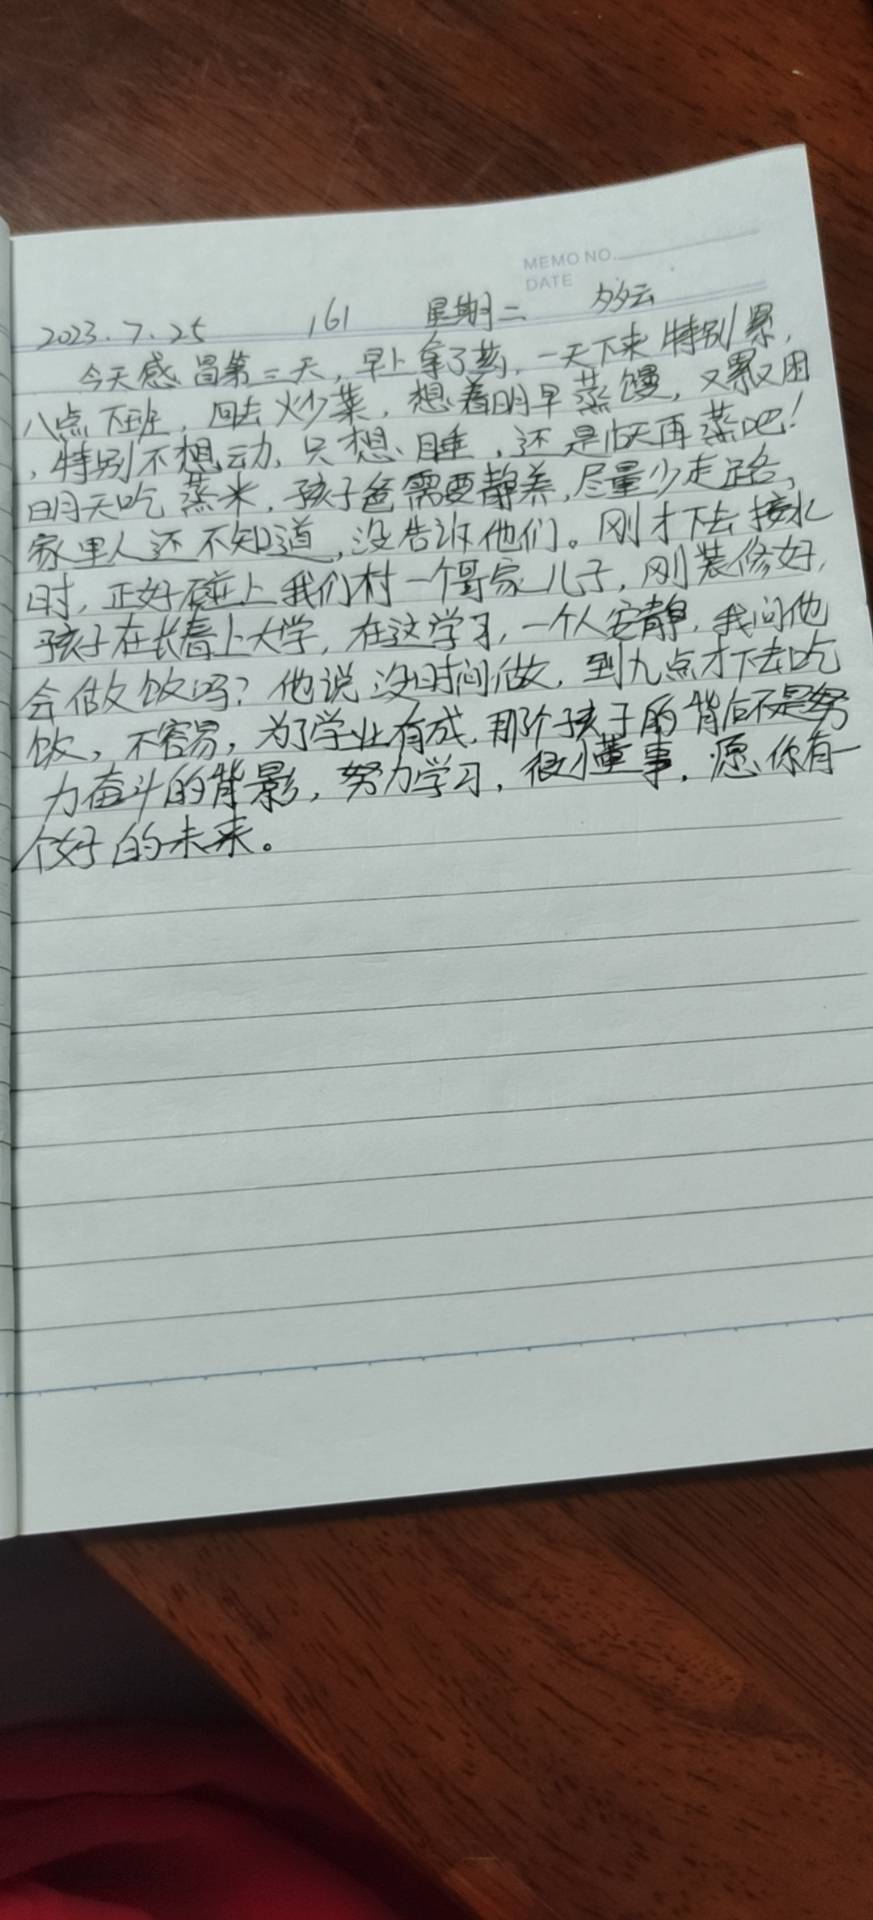 MEMO NO.
DATE
2023.7.25 161 星期二 多云
今天感冒第三天，早上拿了药，一天下来特别累，
八点下班，回去炒菜，想着明早蒸馒，又累又困
，特别不想动，只想睡，还是明天再蒸吧！
明天吃蒸米，孩子爸需要静养，尽量少走路，
家里人还不知道，没告诉他们。刚才下去接水
时，正好碰上我们村一个哥家儿子，刚装修好，
孩子在长春上大学，在这学习，一个人安静，我问他
会做饭吗？他说没时间做，到九点才下去吃
饭，不容易，为了学业有成，那个孩子的背后不是努
力奋斗的背影，努力学习，很懂事，愿你有一
个好的未来。